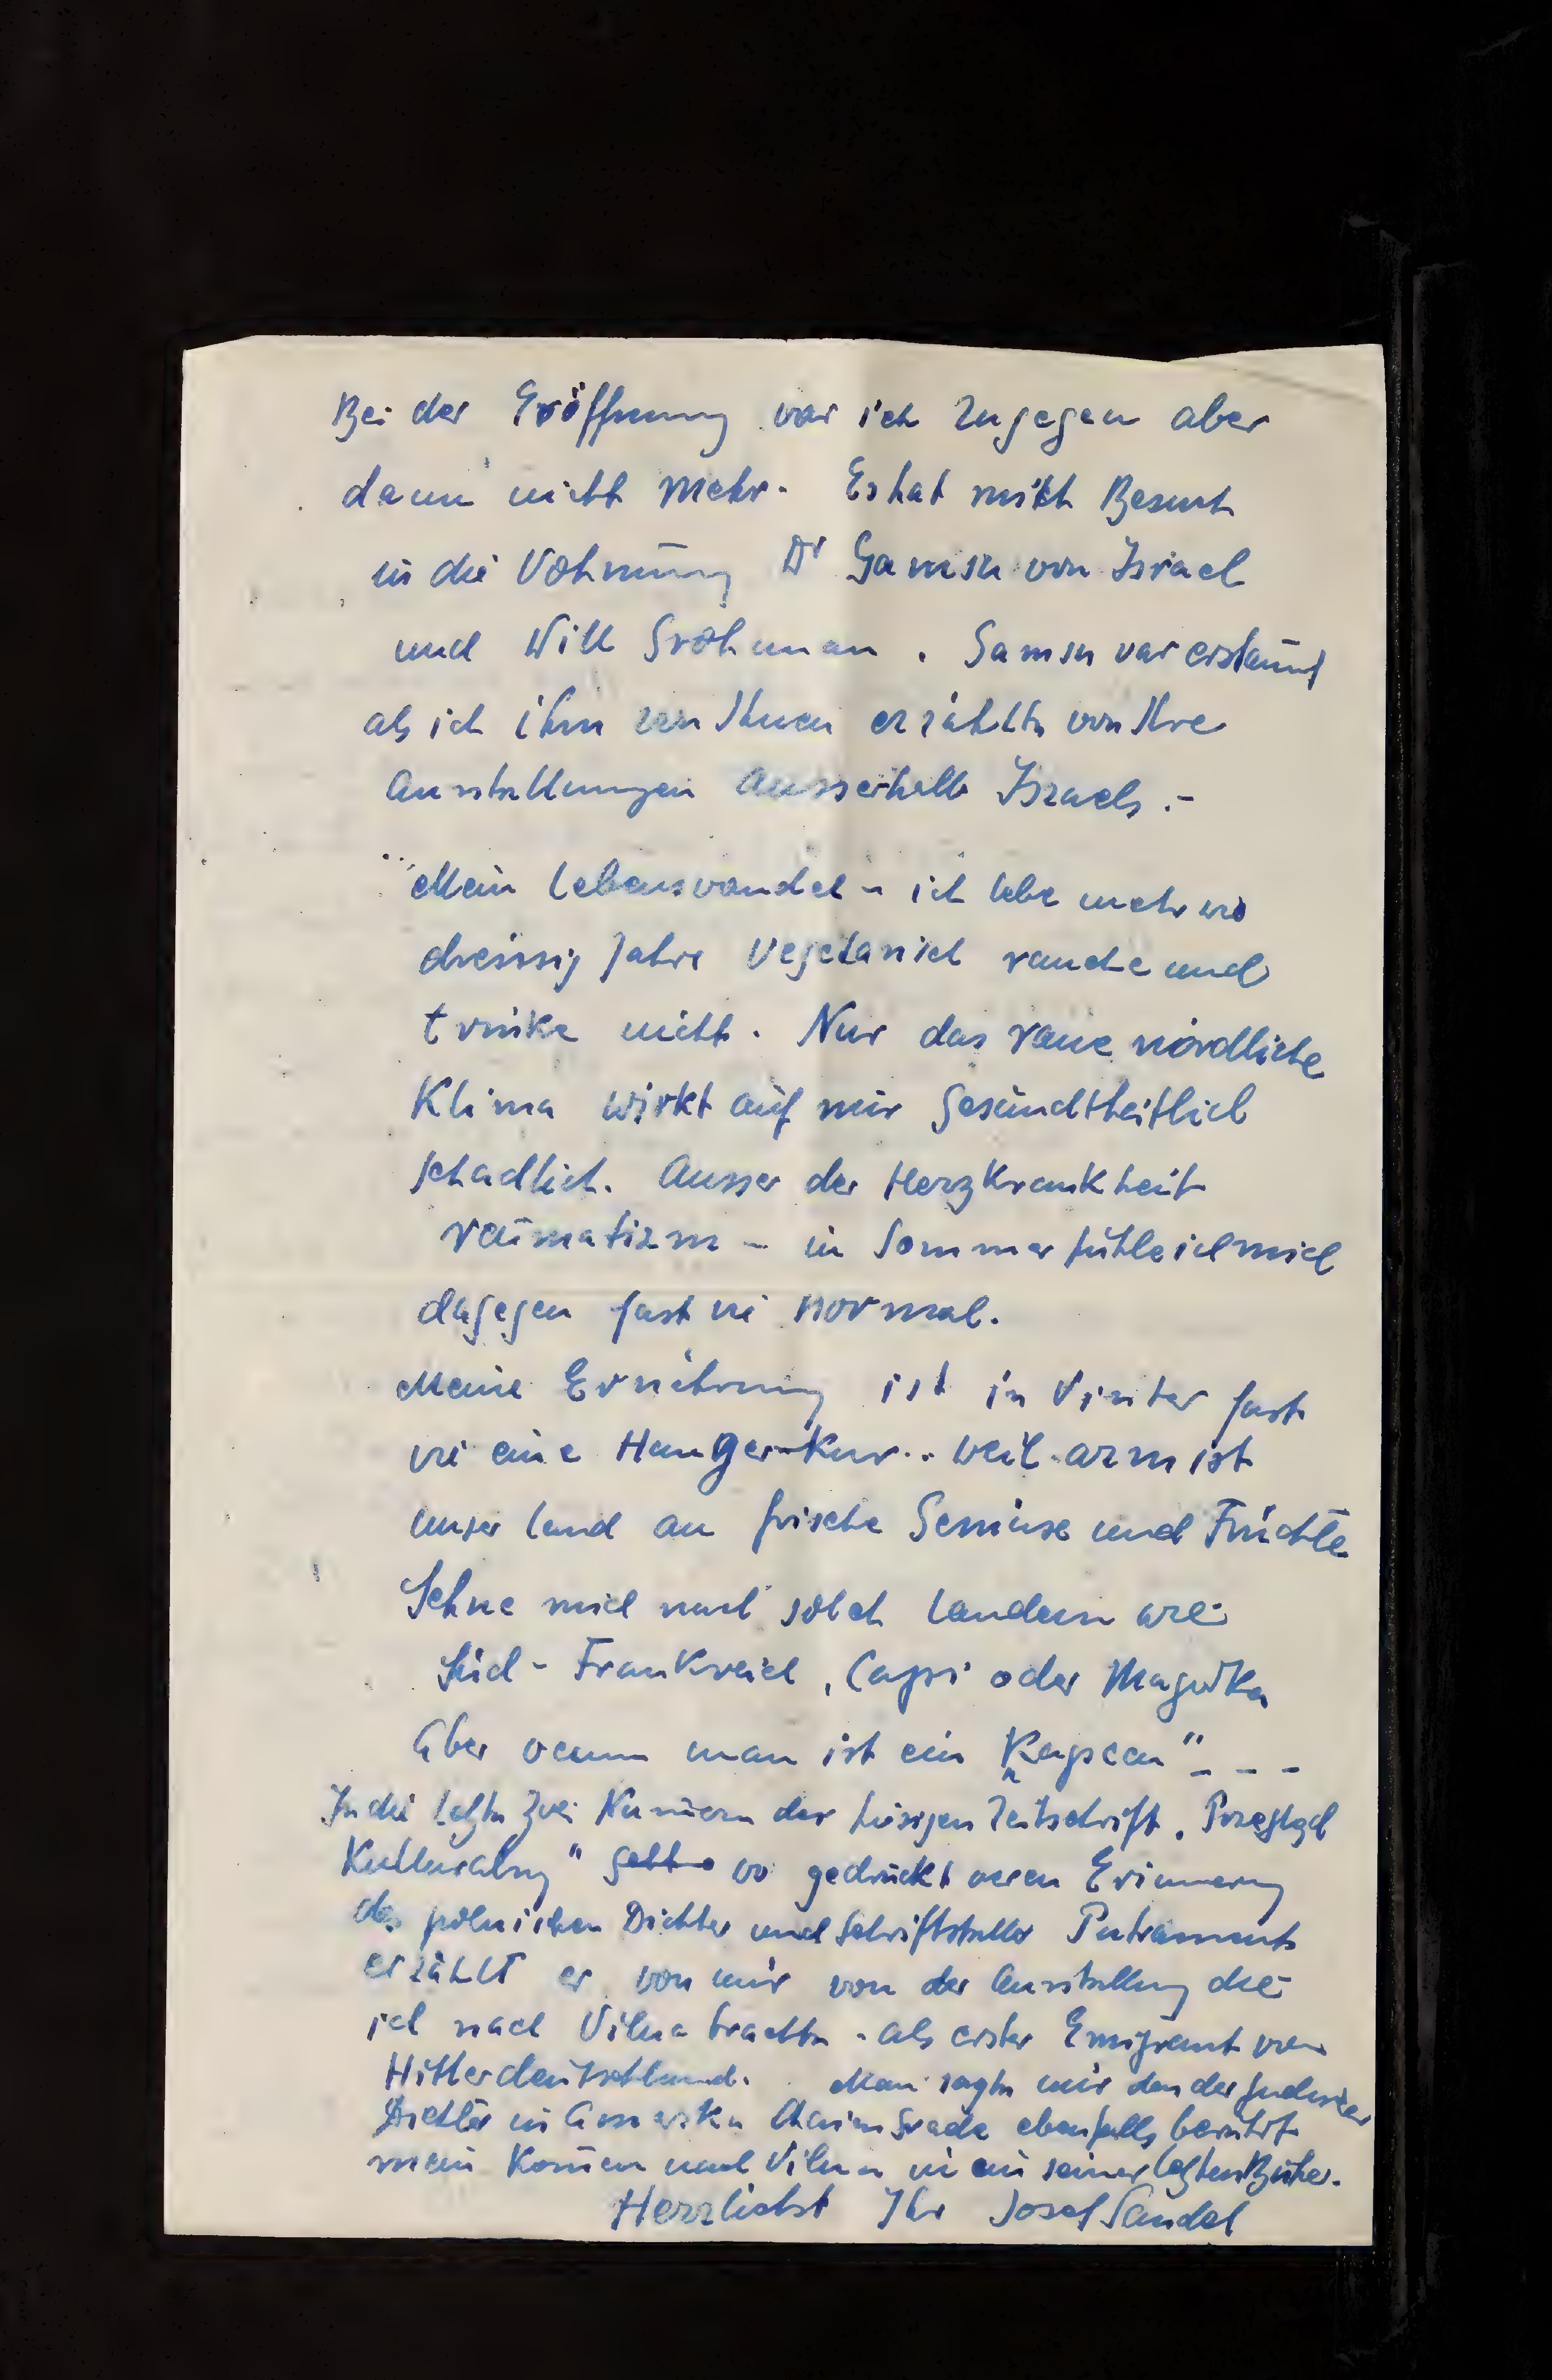 Bei der Eröffnung var ich zugegen aber
dann nicht mehr. Es hat mich Besucht
in die Vohnung Dr Gamsu von Israel
und Will Grohman. Gamsu var erstaunt
als ich ihm von Ihnen erzählte von Ihre
Ausstellungen Ausserhalb Israels.-
Mein Lebensvandel - ich lebe mehr wo
dreissig Jahre Vegetarisch rauche und
trinke nicht. Nur das raue nördliche
Klima wirkt auf mir Gesundtheitlich
schadlich. Ausser der Herzkrankheit
raumatizm - in Sommer fühle ich mich
dagegen fast vi normal.
Meine Ernährung ist in Vinter fast
vi eine Hunger-Kur.. weil arm ist
unser Land an frische Gemüse und Früchte
Sehne mich nach solch Landern wie
Süd-Frankreich, Capri oder Majorka
Aber venn man ist ein „Kapcan" - - -
In die letzte zvei Numern der hiesigen Zeitschrift „Przegląd
Kulturalny" vo gedruckt veren Erinnerung
des polnischen Dichter und Schriftsteller Putraments
erzählt er von mir von der Ausstellung die
ich nach Vilna brachte - als erster Emigrant von
Hitlerdeutschland. Man sagte mir das der judischer
Dichter in Amerska Chaim Grade ebenfalls berührt
mein Komen nach Vilna in ein seiner letzten Bücher.
Herzlichst Ihr Josef Sandel